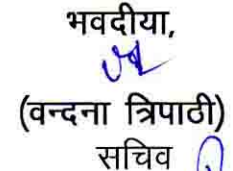 भवदीया,
(वन्दना त्रिपाठी)
सचिव